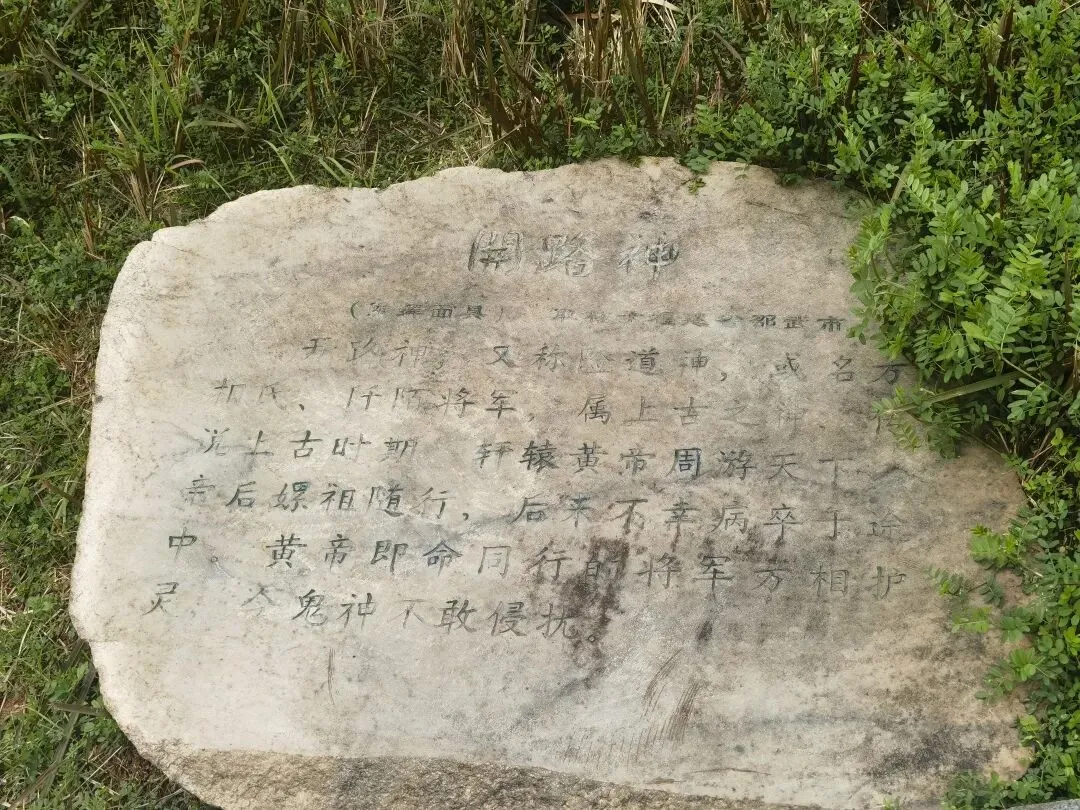 開路神
面具） 取材于福建省邵武市
开路神，又称险道神，或名方
相氏、阡陌将军，属上古之神。传
说上古时期，轩辕黄帝周游天下，
帝后嫘祖随行，后来不幸病卒于途
中。黄帝即命同行的将军方相护
灵，令鬼神不敢侵扰。